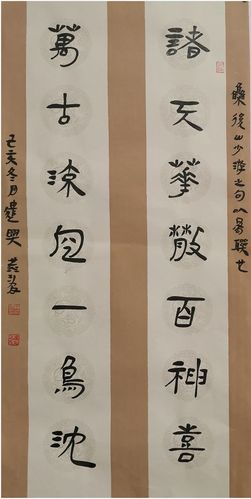 集後山少游之句以為聯
諸天華散百神喜
萬古空一鳥沈
己亥冬月建興